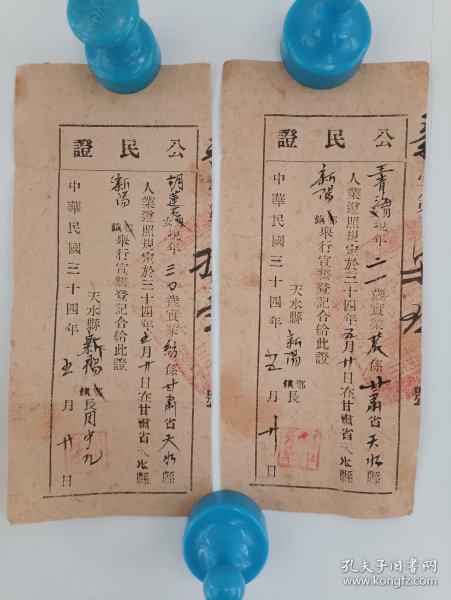 公民證
胡蓮 女現年三〇歲實業紡係甘肅省天水縣
人業遵照規定於三十四年五月廿日在甘肅省天水縣
新陽鄉鎮舉行宣誓登記合給此證
天水縣新陽鄉鎮長周中九
中華民國三十四年五月廿日
公民證
王青海男現年二一歲實業農係甘肅省天水縣
人業遵照規定於三十四年五月廿日在甘肅省天水縣
新陽鄉鎮舉行宣誓登記合給此證
天水縣新陽鄉鎮長
中華民國三十四年五月廿日
號
孔夫子旧书网
www.kongfz.com